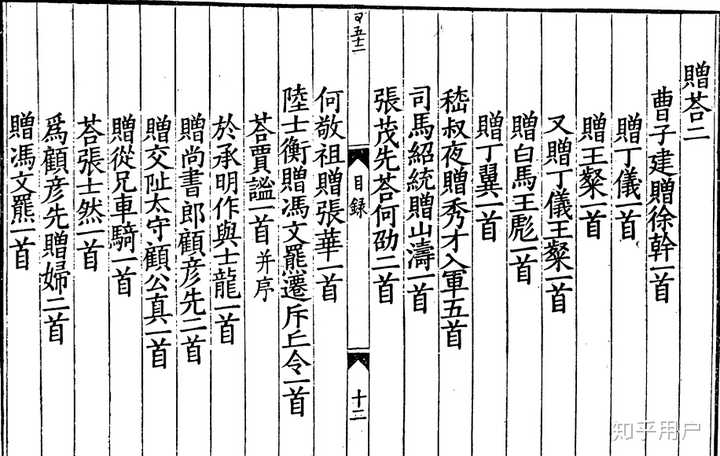 贈荅二
曹子建贈徐幹一首
贈丁儀一首
贈王粲一首
又贈丁儀王粲一首
贈白馬王彪一首
贈丁翼一首
嵇叔夜贈秀才入軍五首
司馬紹統贈山濤一首
張茂先荅何劭二首
目録
十二
何敬祖贈張華一首
陸士衡贈馮文羆遷斥丘令一首
荅賈謐一首并序
於承明作與士龍一首
贈尚書郎顧彦先二首
贈交阯太守顧公真一首
贈從兄車騎一首
荅張士然一首
爲顧彦先贈婦二首
贈馮文羆一首
知乎用户